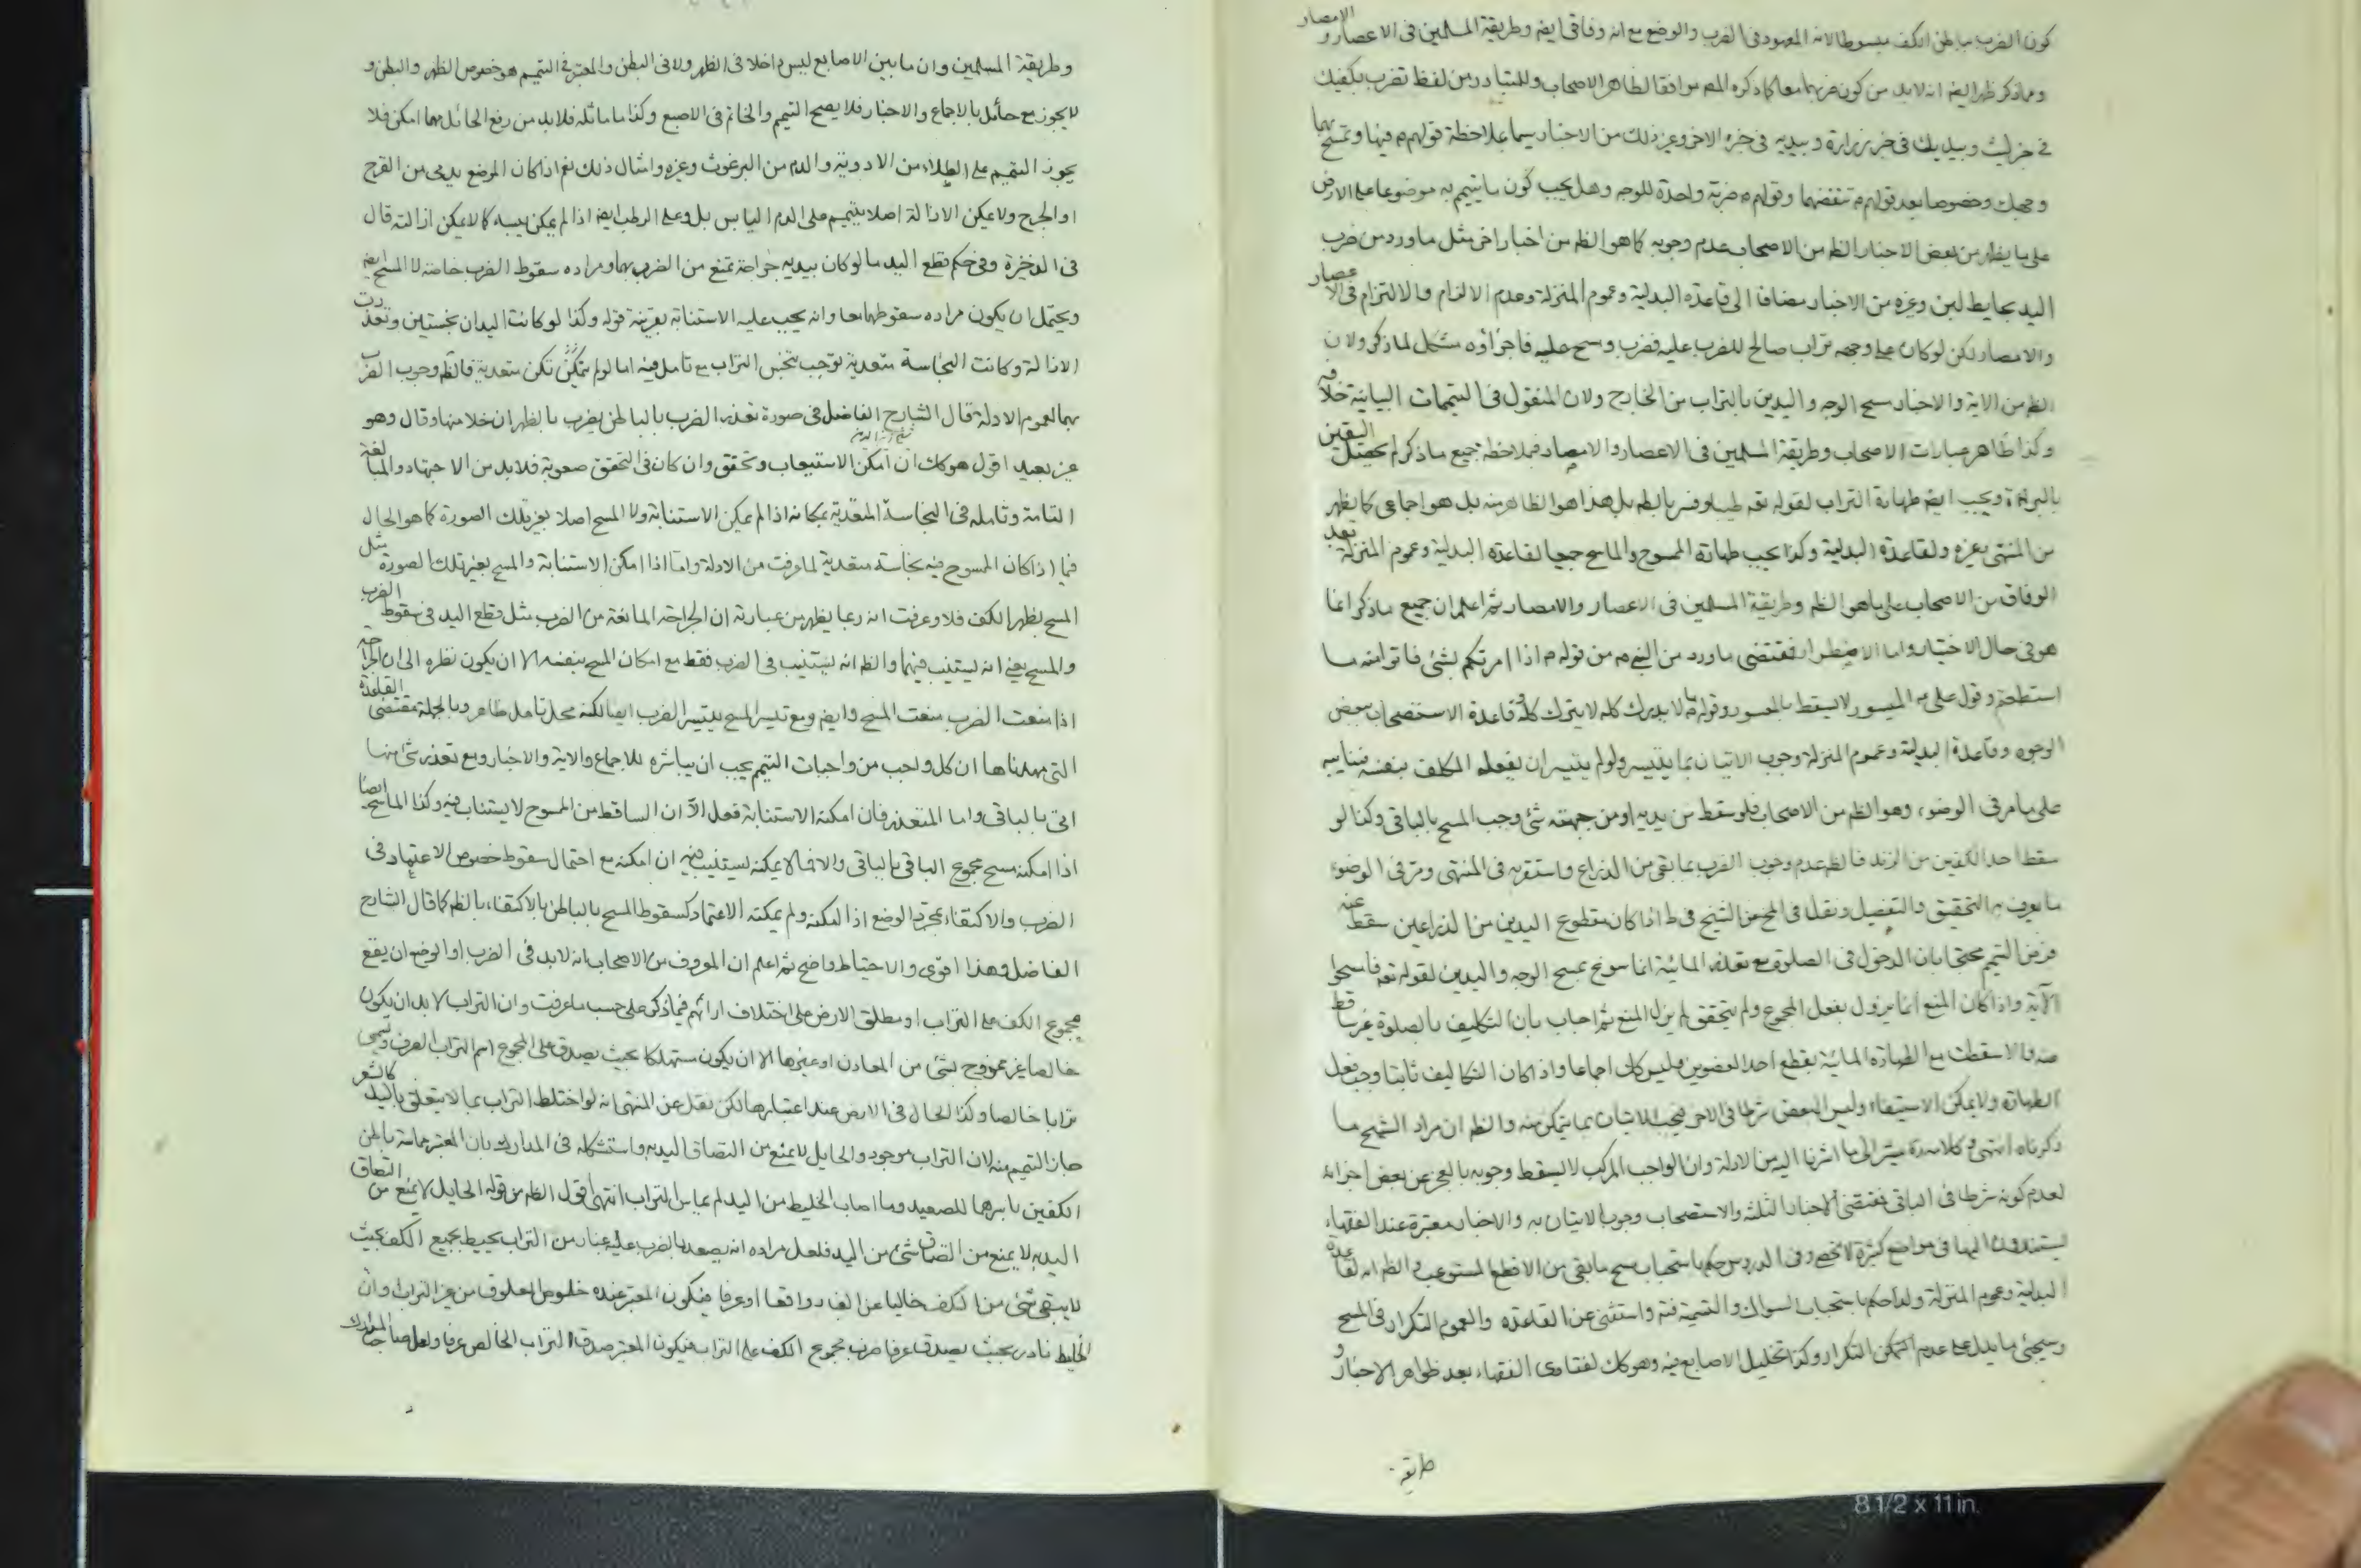 كون الضرب بباطن الكف مبسوطا لانه المعهود فى الضرب والوضع مع انه وفاقى ايضا وطريقة المسلمين فى الاعصار والامصار
ومما ذكر ظهر ايضا انه لابد من كون ضربهما معا كما ذكره المصه موافقا لظاهر الاصحاب وللمتبادر من لفظ تضرب بكفيك
فى خبر ليث وبيديك فى خبر زرارة وبيديه فى خبره الاخر وغير ذلك من الاخبار سيما بملاحظة قولهم ع فيها وتمسح بهما
وجهك وخصوصا بعد قولهم ع تنفضهما وقولهم ع ضربة واحدة للوجه وهل يجب كون ما يتيمم به موضوعا على الارض
على ما يظهر من بعض الاخبار الظم من الاصحاب عدم وجوبه كما هو الظم من اخبار اخر مثل ما ورد من ضرب
اليد بحايط لبن وغيره من الاخبار مضافا الى قاعدة البدلية وعموم المنزلة وعدم الالزام والالتزام فى الاعصار
والامصار لكن لو كان على وجهه تراب صالح للضرب عليه فضرب ومسح عليه فاجزاؤه مشكل لما ذكر ولان
الظم من الاية والاخبار مسح الوجه واليدين بالتراب من الخارج ولان المنقول فى التيممات البيانية خلافه
وكذا ظاهر عبارات الاصحاب وطريقة المسلمين فى الاعصار والامصار فبملاحظة جميع ما ذكر لم يحصل اليقين
بالبراءة ويجب ايضا طهارة التراب لقوله تع طيبا وفسر بالطم بل هذا هو الظاهر منه بل هو اجماعى كما يظهر
من المنتهى وغيره ولقاعدة البدلية وكذا يجب طهارة الممسوح والماسح جميعا لقاعدة البدلية وعموم المنزلة بعد
الوفاق من الاصحاب على ما هو الظم وطريقة المسلمين فى الاعصار والامصار ثم اعلم ان جميع ما ذكر انما
هو فى حال الاختيار واما الاضطرار فمقتضى ما ورد من النبى ص من قوله ص اذا امرتكم بشئ فاتوا منه ما
استطعتم وقول على ع الميسور لا يسقط بالمعسور وقوله ع ما لا يدرك كله لا يترك كله وقاعدة الاستصحاب ببعض
الوجوه وقاعدة البدلية وعموم المنزلة وجوب الاتيان بما يتيسر ولو لم يتيسر ان يفعله المكلف بنفسه فبنايبه
على ما مر فى الوضوء وهو الظم من الاصحاب فلو سقط من يديه او من جبهته شئ وجب المسح بالباقى وكذا لو
سقط احد الكفين من الزند فالظم عدم وجوب الضرب بما بقى من الذراع واستقربه فى المنتهى ومر فى الوضوء
ما يعرف به التحقيق والتفصيل ونقل فى المخ عن الشيخ فى ط اذا كان مقطوع اليدين من الذراعين سقط عنه
فرض التيمم محتجا بان الدخول فى الصلوة مع تعذر المائية انما سوغ بمسح الوجه واليدين لقوله تعه فامسحوا
الآية واذا كان المنع انما يزول بفعل المجموع ولم يتحقق لم يزل المنع ثم اجاب بان التكليف بالصلوة غير ساقط
عنه والا سقطت مع الطهارة المائية بقطع احد العضوين وليس كك اجماعا واذا كان التكليف ثابتا وجب فعل
الطهارة ولا يمكن الاستيفاء وليس البعض شرطا فى الاخر فيجب الاتيان بما يتمكن منه والظم ان مراد الشيخ ما
ذكرناه انتهى وكلامه يشير الى ما اشرنا اليه من الادلة وان الواجب المركب لا يسقط وجوبه بالعجز عن بعض اجزائه
لعدم كونه شرطا فى الباقى فمقتضى الاخبار الثلثة والاستصحاب وجوب الاتيان به والاخبار معتبرة عند الفقهاء
يستندون اليها فى مواضع كثيرة لا تحصى وفى الدروس حكم باستحباب مسح ما بقى من الاقطع المستوعب والظم انه لقاعدة
البدلية وعموم المنزلة ولذا حكم باستحباب السواك والتسمية فيه واستثنى عن القاعدة والعموم التكرار فى المسح
وسيجئ ما يدل على عدم التكرار وكذا تخليل الاصابع فيه وهو كك لفتاوى الفقهاء بعد ظواهر الاخبار و
طريقة
وطريقة المسلمين وان ما بين الاصابع ليس داخلا فى الظهر ولا فى البطن والمعتبر فى التيمم هو خصوص الظهر والبطن و
لا يجوز مع حائل بالاجماع والاخبار فلا يصح التيمم والخاتم فى الاصبع وكذا ما ماثله فلابد من رفع الحائل مهما امكن فلا
يجوز التيمم على الطلاء من الادوية والدم من البرغوث وغيره وامثال ذلك نعم اذا كان الموضع يدمى من القرح
او الجرح ولا يمكن الازالة اصلا يتيمم على الدم اليابس بل وعلى الرطب ايضا اذا لم يمكن يبسه كما لا يمكن ازالته قال
فى الذخيرة وفى حكم قطع اليد ما لو كان بيديه جراحة تمنع من الضرب بهما ومراده سقوط الضرب خاصة لا المسح ايضا
ويحتمل ان يكون مراده سقوطهما معا وانه يجب عليه الاستنابة بقرينة قوله وكذا لو كانت اليدان نجستين وتعذرت
الازالة وكانت النجاسة متعدية توجب تنجس التراب مع تامل فيه اما لو لم تكن متعدية فالظم وجوب الضرب
بهما لعموم الادلة قال الشارح الفاضل فى صورة تعذر الضرب بالباطن يضرب بالظهر ان خلا منها وقال وهو
غير بعيد اقول هو كك ان امكن الاستيعاب وتحقق وان كان فى التحقق صعوبة فلابد من الاجتهاد والمبالغة
التامة وتامله فى النجاسة المتعدية بمكانه اذا لم يمكن الاستنابة ولا المسح اصلا بغير تلك الصورة كما هو الحال
فيما اذا كان الممسوح فيه نجاسة متعدية لما عرفت من الادلة واما اذا امكن الاستنابة والمسح بغير تلك الصورة مثل
المسح بظهر الكف فلا وعرفت انه ربما يظهر من عبارته ان الجراحة المانعة من الضرب مثل قطع اليد فى سقوط الضرب
والمسح يعنى انه يستنيب فيهما والظم انه يستنيب فى الضرب فقط مع امكان المسح بنفسه الا ان يكون نظره الى ان الجراحة
اذا منعت الضرب منعت المسح وايضا ومع تيسر المسح يتيسر الضرب ايضا لكنه محل تامل ظاهر وبالجملة مقتضى القاعدة
التى مهدناها ان كل واجب من واجبات التيمم يجب ان يباشره للاجماع والاية والاخبار ومع تعذر شئ منها
اتى بالباقى واما المتعذر فان امكنه الاستنابة فعل الآ ان الساقط من الممسوح لا يستناب فيه وكذا الماسح ايضا
اذا امكنه مسح مجموع الباقى بالباقى والا فما لا يمكنه يستنيب فيه ان امكنه مع احتمال سقوط خصوص الاعتماد فى
الضرب والاكتفاء بمجرد الوضع اذا امكنه ولم يمكنه الاعتماد كسقوط المسح بالباطن بالاكتفاء بالظم كما قال الشارح
الفاضل وهذا اقوى والاحتياط واضح ثم اعلم ان المعروف من الاصحاب انه لابد فى الضرب او الوضع ان يقع
مجموع الكف على التراب او مطلق الارض على اختلاف ارائهم فيما ذكر على حسب ما عرفت وان التراب لابد ان يكون
خالصا غير ممزوج بشئ من المعادن او غيرها الا ان يكون مستهلكا بحيث يصدق على المجموع اسم التراب العرف ويسمى
ترابا خالصا وكذا الحال فى الارض عند اعتبارها لكن نقل عن المنتهى انه لو اختلط التراب بما لا يتعلق باليد كالشعر
جاز التيمم منه لان التراب موجود والحايل لا يمنع من التصاق اليد به واستشكله فى المدارك بان المعتبر مماسة باطن
الكفين باسرها للصعيد وما اصاب الخليط من اليد لم يماس التراب انتهى اقول الظم من قوله الحايل لا يمنع من التصاق
اليد به لا يمنع من التصاق شئ من اليد فلعل مراده انه يصعد بالضرب عليه غبار من التراب يحيط بجميع الكف بحيث
لا يبقى شئ من الكف خاليا عن الغبار واقعا او عرفا فيكون المعتبر عنده خلوص العلوق من غير التراب وان
الخليط نادر بحيث يصدق عرفا ضرب مجموع الكف على التراب فيكون المعتبر صدق التراب الخالص عرفا ولعل صاحب المدارك
8 1/2 x 11 in.